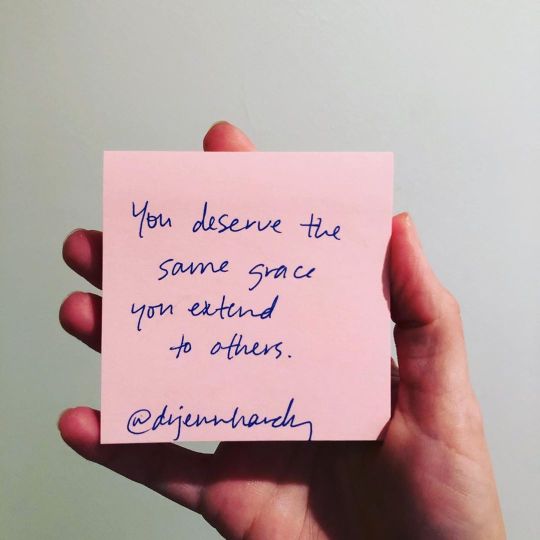 You deserve the
same grace
you extend
to others.
@drjennhardy